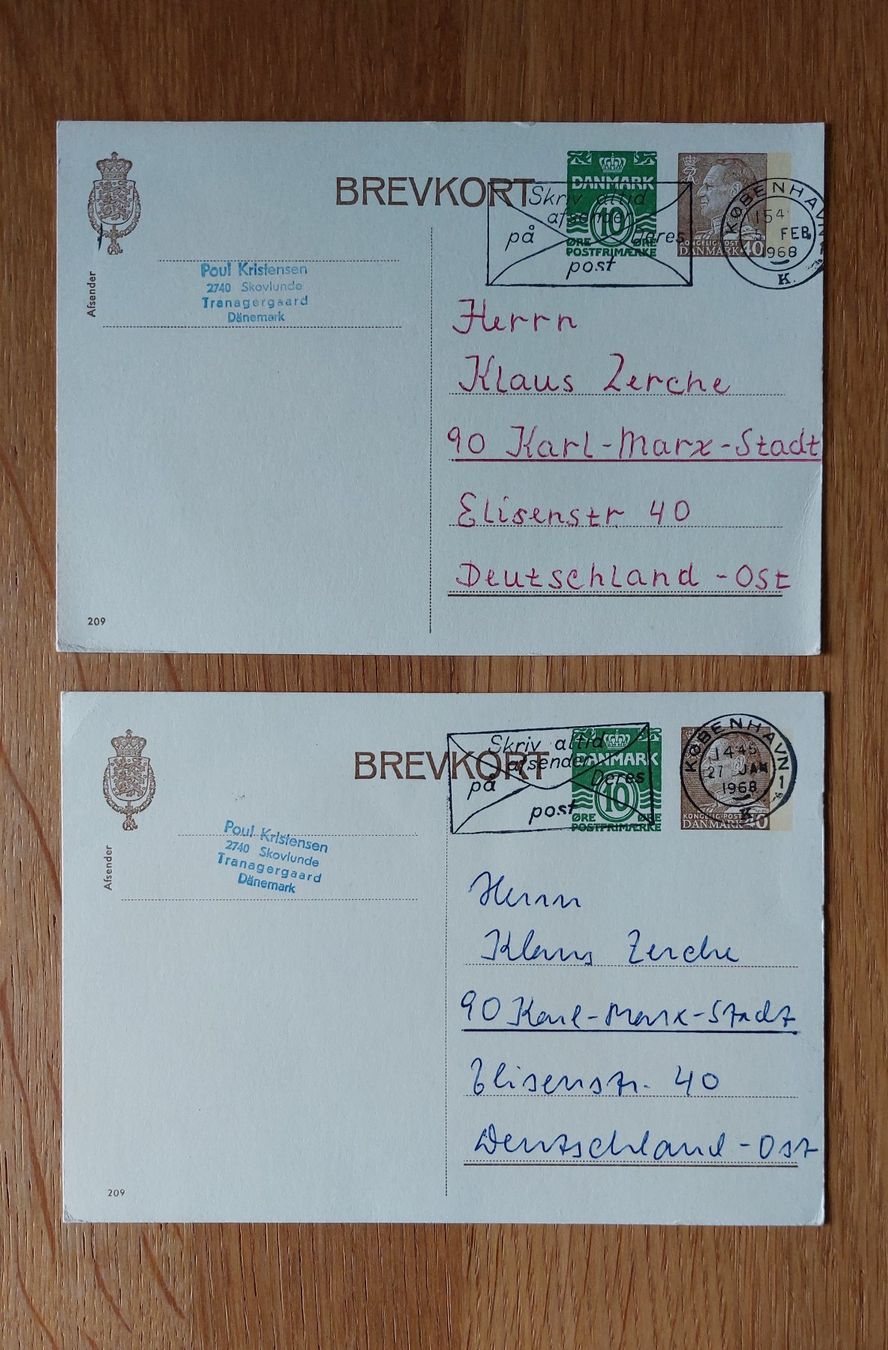 BREVKORT
Skriv altid
afsender
på Deres
post
DANMARK
10
ØRE ØRE
POSTFRIMÆRKE
KONGELIG POST
DANMARK 40
KØBENHAVN
154
FEB
1968
K.
Afsender
Poul Kristensen
2740 Skovlunde
Tranagergaard
Dänemark
Herrn
Klaus Zerche
90 Karl-Marx-Stadt
Elisenstr 40
Deutschland-Ost
209
BREVKORT
Skriv altid
afsender
på Deres
post
DANMARK
10
ØRE ØRE
POSTFRIMÆRKE
KONGELIG POST
DANMARK 40
KØBENHAVN 1
1445
27 JAN
1968
K
Afsender
Poul Kristensen
2740 Skovlunde
Tranagergaard
Dänemark
Herrn
Klaus Zerche
90 Karl-Marx-Stadt
Elisenstr. 40
Deutschland-Ost
209